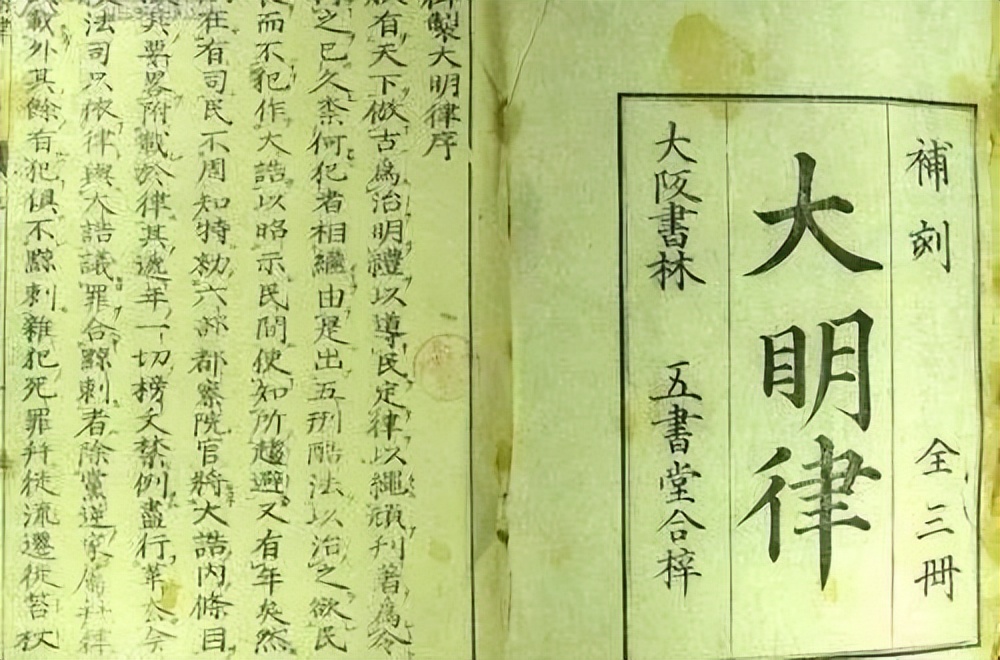 補刻 全三冊
大明律
大阪書林 五書堂合梓
製大明律序
有天下倣古爲治明禮以導民定律以繩頑刊著爲令
之已久柰何犯者相繼由是出五刑酷法以治之欲民
而不犯作大誥以昭示民間使知所趨避又有年矣然
在有司民不周知特勑六部都察院官將大誥内條目
其要畧附載於律其逓年一切榜文禁例盡行革去今
法司只依律與大誥議罪合黥刺者除黨逆家屬并律
載外其餘有犯俱不黥刺雜犯死罪并徒流遷徙笞杖